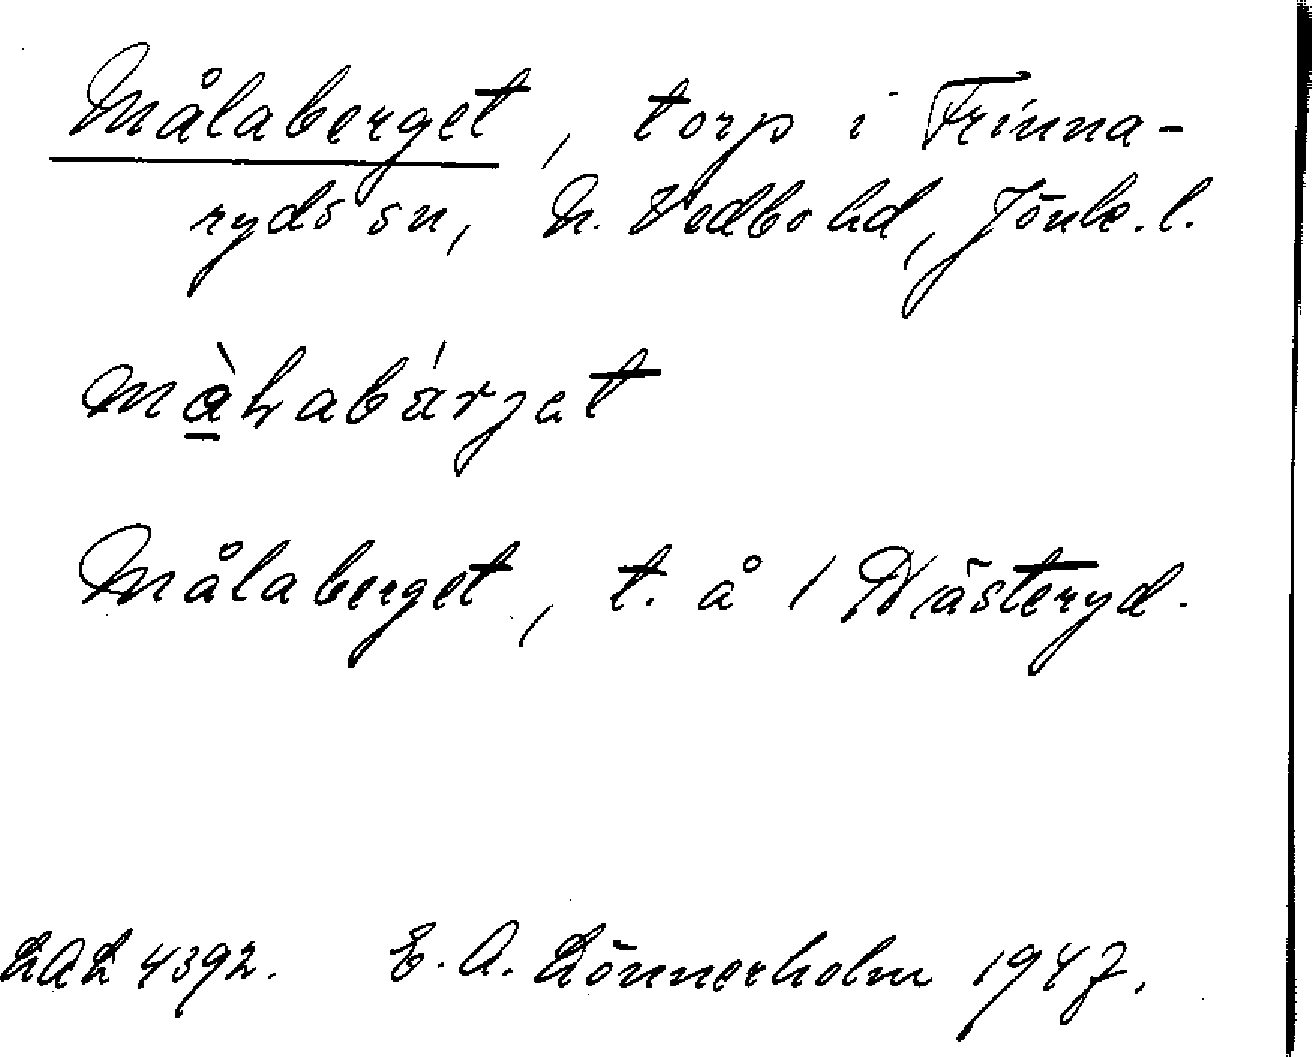 Målaberget, torp i Frinna-
ryds sn, N. Vedbo hd, Jönk. l.
Målaberget, t. å 1 Västeryd.
LAL 4392. E. A. Lönnerholm 1947.